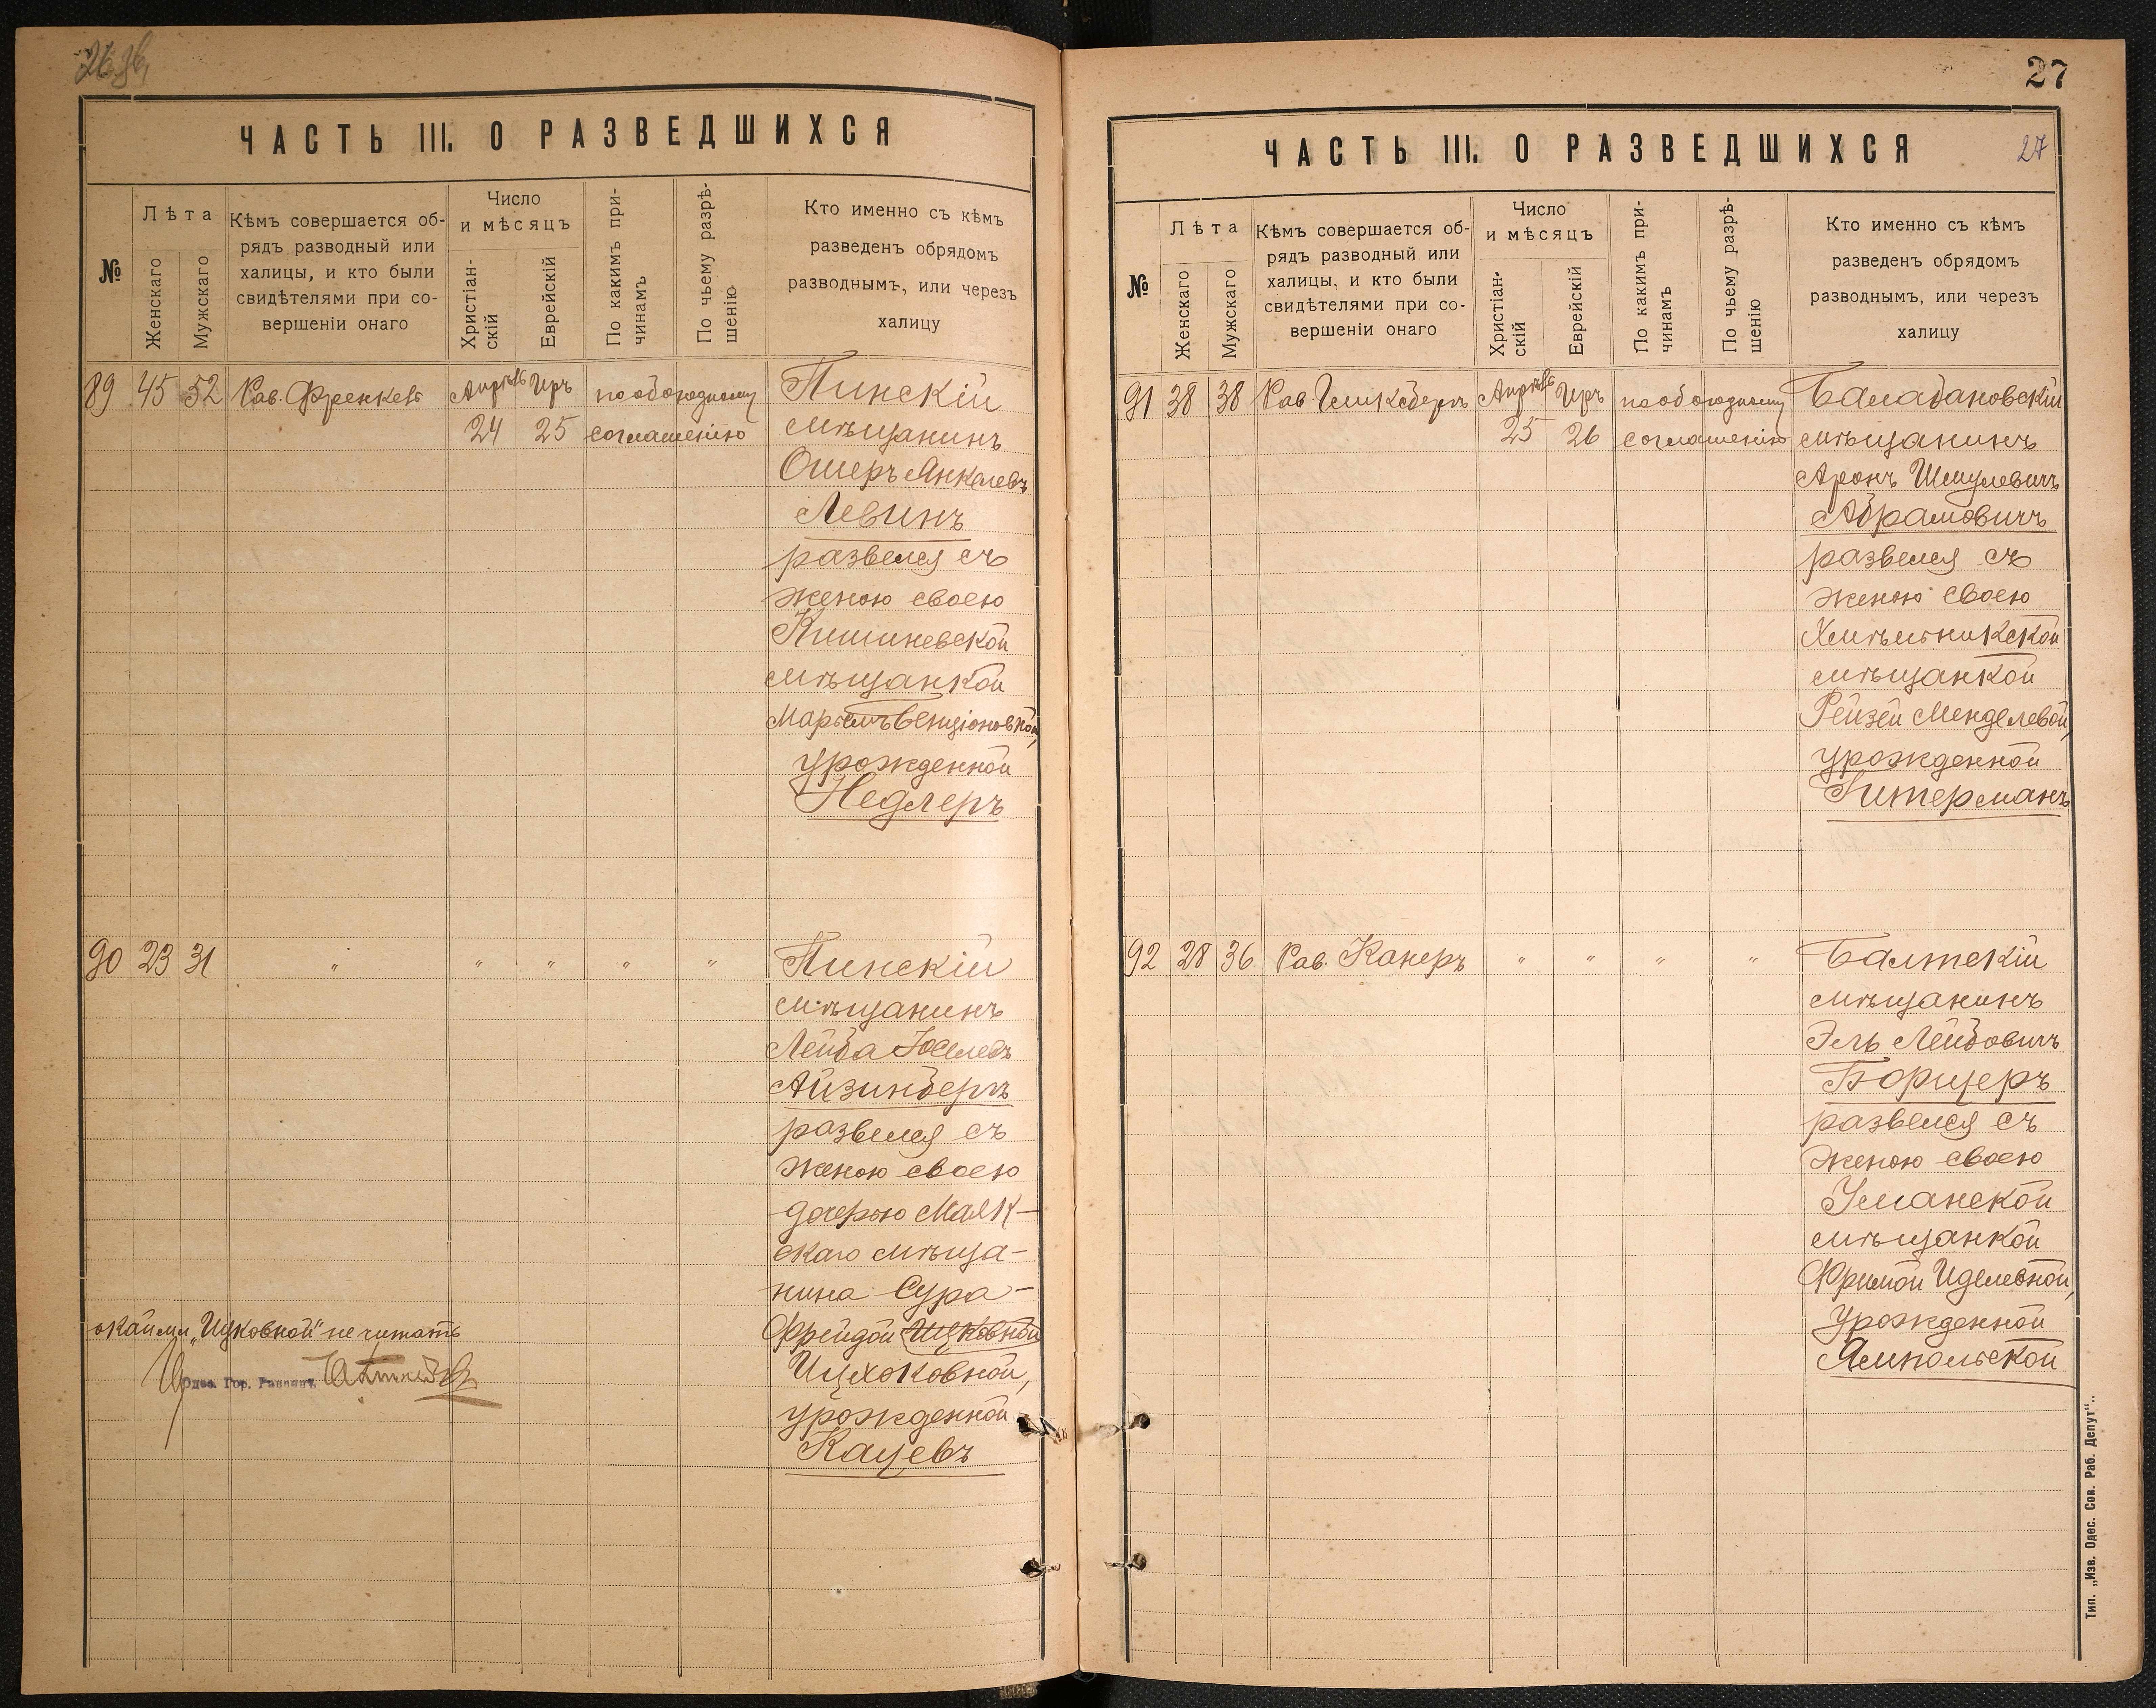 26 зв.
ЧАСТЬ III. О РАЗВЕДШИХСЯ
№
Лѣта
Женскаго
Мужскаго
Кѣмъ совершается об-
рядъ разводный или
халицы, и кто были
свидѣтелями при со-
вершеніи онаго
Число
и мѣсяцъ
Христіан-
скій
Еврейскій
По какимъ при-
чинамъ
По чьему разрѣ-
шенію
Кто именно съ кѣмъ
разведенъ обрядомъ
разводнымъ, или черезъ
халицу
89 45 52 Рав. Френкель Апрѣль Иръ по обоюдному Пинскій
24 25 соглашенію мѣщанинъ
Ошеръ Янкелевъ
Левинъ
развелся съ
женою своею
Кишиневской
мѣщанкой
Марьемъ Бенціоновной,
урожденной
Недлеръ
90 23 31 " " " " " Пинскій
мѣщанинъ
Лейба Іоселевъ
Айзинбергъ
развелся съ
женою своею
дочерью Маяк-
скаго мѣща-
нина Сура-
Фрейдой Ицковной
Ицхоковной,
урожденной
Кацевъ
"Ицковной" не читать
Одес. Гор. Раввинъ
27
ЧАСТЬ III. О РАЗВЕДШИХСЯ
27
№
Лѣта
Женскаго
Мужскаго
Кѣмъ совершается об-
рядъ разводный или
халицы, и кто были
свидѣтелями при со-
вершеніи онаго
Число
и мѣсяцъ
Христіан-
скій
Еврейскій
По какимъ при-
чинамъ
По чьему разрѣ-
шенію
Кто именно съ кѣмъ
разведенъ обрядомъ
разводнымъ, или черезъ
халицу
91 38 38 Рав. Апрѣль Иръ по обоюдному Балабановскій
25 26 соглашенію мѣщанинъ
Аронъ Шмулевичъ
Абрамовичъ
развелся съ
женою своею
Хмѣльникской
мѣщанкой
Рейзей Менделевой,
урожденной
Гитерманъ
92 28 36 Рав. Канеръ " " " " Балтскій
мѣщанинъ
Эль Лейбовичъ
Борщеръ
развелся съ
женою своею
Уманской
мѣщанкой
Фримой Иделевной,
урожденной
Ямпольской
Тип. „Изв. Одес. Сов. Раб. Депут“..